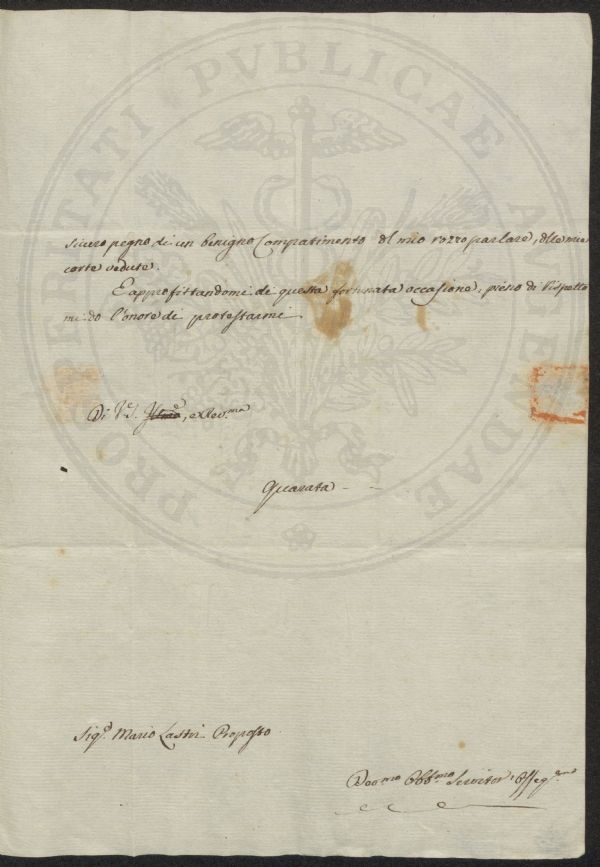 PROSPERITATI PVBLICAE AVGENDAE
sicuro pegno di un benigno Compatimento del mio rozzo parlare, delle mie
corte vedute.
E approfittandomi di questa fortunata occasione, pieno di Rispetto
mi do l'onore di protestarmi
Di V.S. e Rev.ma
Quarata
Sig.e Mario Lastri Proposto
Dev.mo Obb.mo Servitor Osseq.mo